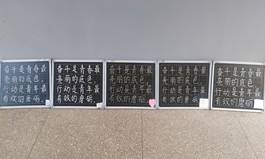 奋斗是青春最
亮丽的底色,
行动是青年最
有效的磨砺。
奋斗是青春最
亮丽的底色,
行动是青年最
有效的磨砺。
奋斗是青春最
亮丽的底色,
行动是青年最
有效的磨砺。
奋斗是青春最
亮丽的底色,
行动是青年最
有效的磨砺。
奋斗是青春最
亮丽的底色,
行动是青年最
有效的磨砺。